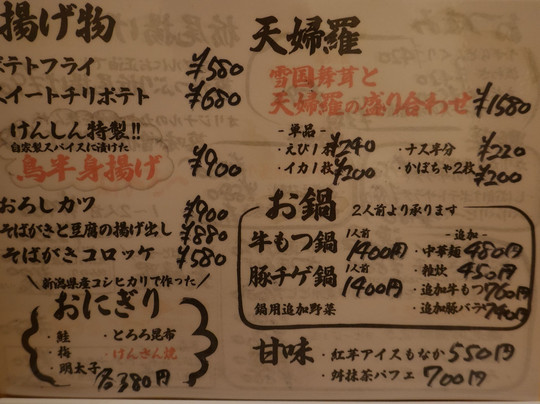 揚げ物
ポテトフライ ¥580
スイートチリポテト ¥680
けんしん特製!!
自家製スパイスに漬けた
鳥半身揚げ ¥900
おろしカツ ¥900
そばがきと豆腐の揚げ出し ¥880
そばがきコロッケ ¥580
新潟県産コシヒカリで作った
おにぎり
・鮭 ・とろろ昆布
・梅 ・けんさん焼
・明太子 各380円
天婦羅
雪国舞茸と
天婦羅の盛り合わせ ¥1580
- 単品 -
・えび1本 ¥240 ・ナス半分 ¥220
・イカ1枚 ¥200 ・かぼちゃ2枚 ¥200
お鍋 2人前より承ります
牛もつ鍋 1人前 1400円
豚チゲ鍋 1人前 1400円
鍋用追加野菜
- 追加 -
・中華麺 480円
・雑炊 450円
・追加牛もつ 760円
・追加豚バラ 740円
甘味 ・紅芋アイスもなか 550円
・抹茶パフェ 700円